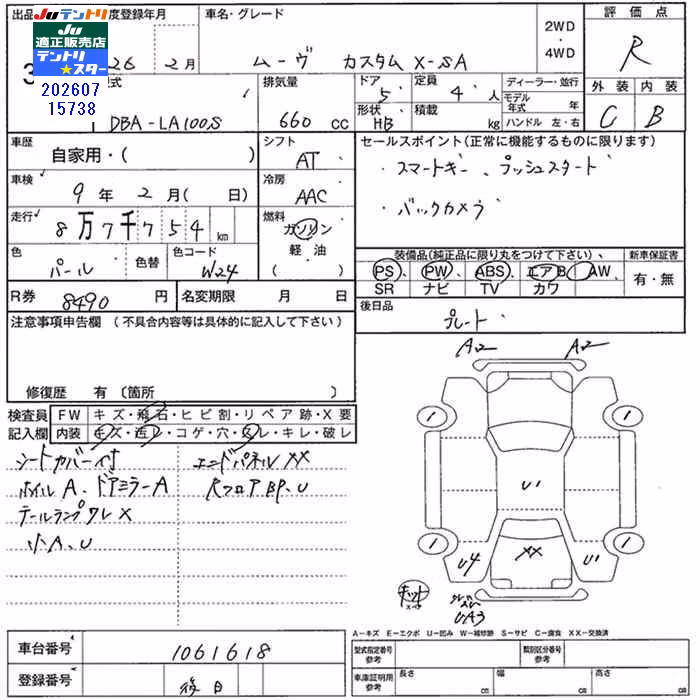 出品
度登録年月
車名・グレード
2WD
・
4WD
評価点
Juテントリ
JU
適正販売店
テントリ
★スター
202607
15738
26 2月
ムーヴ カスタム X-SA
R
型式
DBA-LA100S
排気量
660 cc
ドア
5
定員
4 人
形状
HB
積載
kg
ディーラー・並行
モデル年式 年
ハンドル 左・右
外装
C
内装
B
車歴
自家用・( )
シフト
AT
セールスポイント(正常に機能するものに限ります)
・スマートキー、プッシュスタート
・バックカメラ
車検
9年 2月( 日)
冷房
AAC
走行
8万7千754km
燃料
ガソリン
軽・油
( )
色
パール
色替
色コード
W24
装備品(純正品に限り丸をつけて下さい)、
PS PW ABS エアB AW
SR ナビ TV カワ
新車保証書
有・無
R券
8490円
名変期限 月 日
後日品
プレート
注意事項申告欄 (不具合内容等は具体的に記入して下さい)
修復歴 有 〔箇所 〕
検査員
記入欄
FW キズ・飛石・ヒビ割・リペア跡・X要
内装 キズ・汚レ・コゲ・穴・スレ・キレ・破レ
シートカバー付
エンドパネルXX
ホイルA、ドアミラーA
RフロアBP、U
テールランプワレX
小A、U
A2
A2
1
1
U1
1
1
U4
XX
U1
キット
UA3
A-キズ E-エクボ U-凹み W-補修跡 S-サビ C-腐食 XX-交換済
車台番号
1061618
登録番号
後日
型式指定番号
参考
類別区分番号
参考
車庫証明用
参考
長さ cm
幅 cm
高さ cm